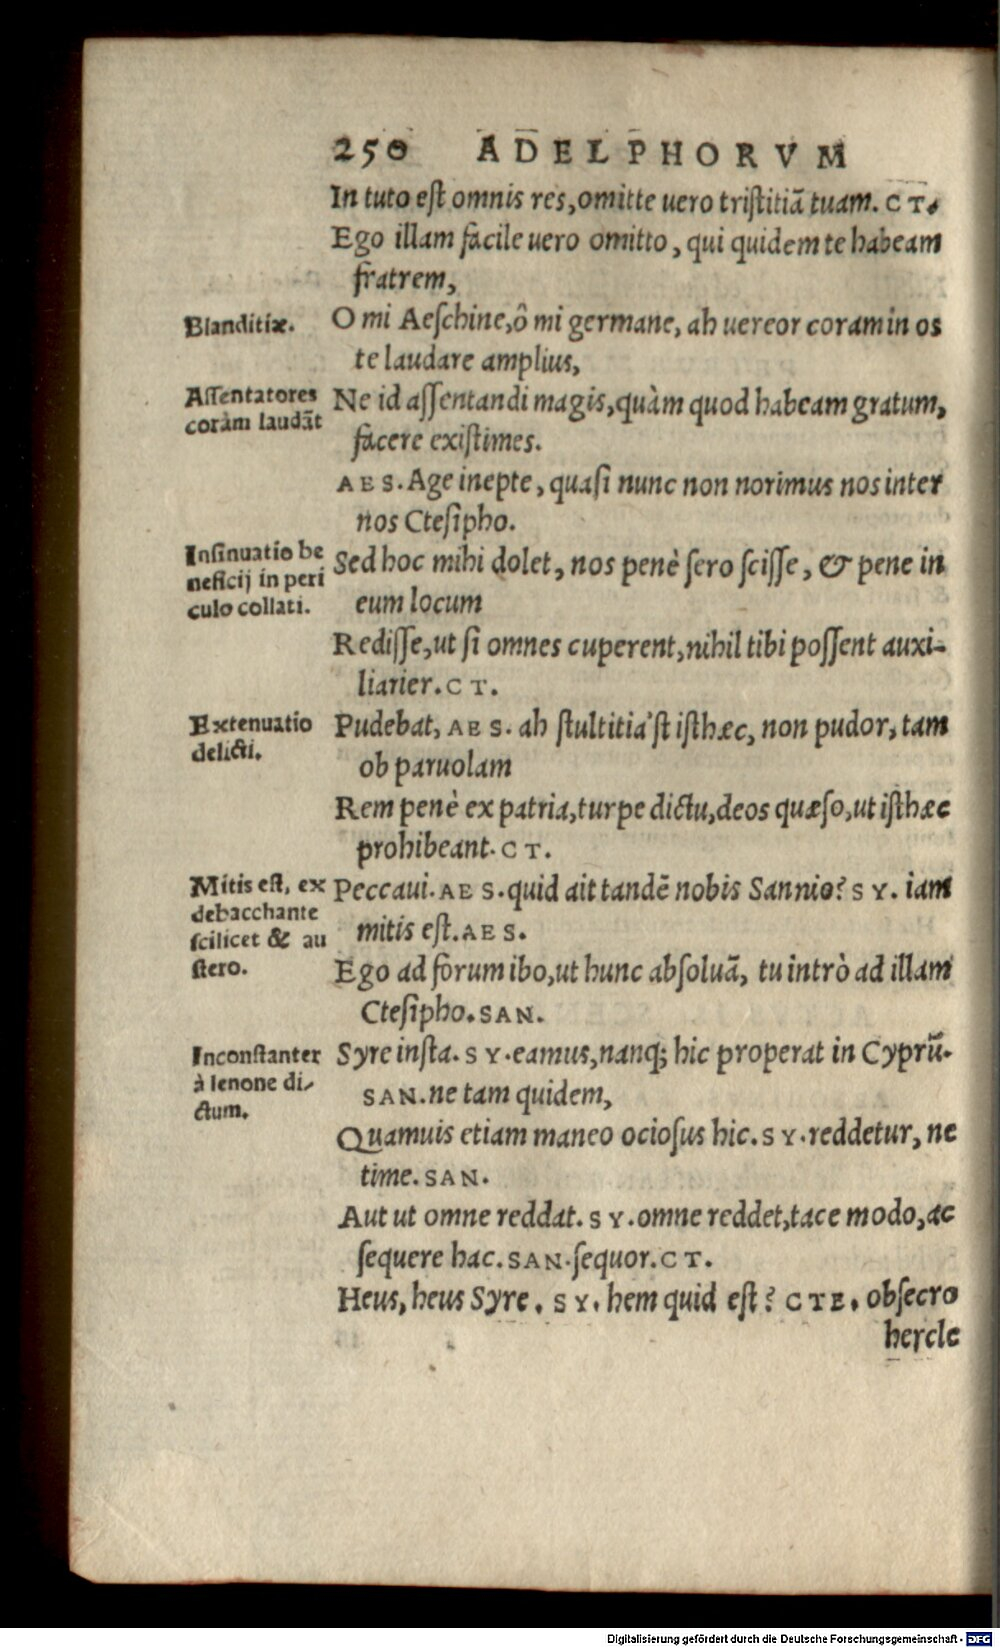 250 ADELPHORVM
In tuto est omnis res, omitte uero tristitiã tuam. CT.
Ego illam facile uero omitto, qui quidem te habeam
fratrem,
Blanditiæ.
O mi Aeschine, ô mi germane, ah uereor coram in os
te laudare amplius,
Assentatores
coràm laudãt
Ne id assentandi magis, quàm quod habeam gratum,
facere existimes.
AES. Age inepte, quasi nunc non norimus nos inter
nos Ctesipho.
Insinuatio be
neficij in peri
culo collati.
Sed hoc mihi dolet, nos penè sero scisse, & pene in
eum locum
Redisse, ut si omnes cuperent, nihil tibi possent auxi-
liarier. CT.
Extenuatio
delicti.
Pudebat, AES. ah stultitia'st isthæc, non pudor, tam
ob paruolam
Rem penè ex patria, turpe dictu, deos quæso, ut isthæc
prohibeant. CT.
Mitis est, ex
debacchante
scilicet & au
stero.
Peccaui. AES. quid ait tandẽ nobis Sannio? SY. iam
mitis est. AES.
Ego ad forum ibo, ut hunc absoluã, tu intrò ad illam
Ctesipho. SAN.
Inconstanter
à lenone di-
ctum.
Syre insta. SY. eamus, nanq; hic properat in Cyprũ.
SAN. ne tam quidem,
Quamuis etiam maneo ociosus hic. SY. reddetur, ne
time. SAN.
Aut ut omne reddat. SY. omne reddet, tace modo, ac
sequere hac. SAN. sequor. CT.
Heus, heus Syre. SY. hem quid est? CTE. obsecro
hercle
Digitalisierung gefördert durch die Deutsche Forschungsgemeinschaft - DFG